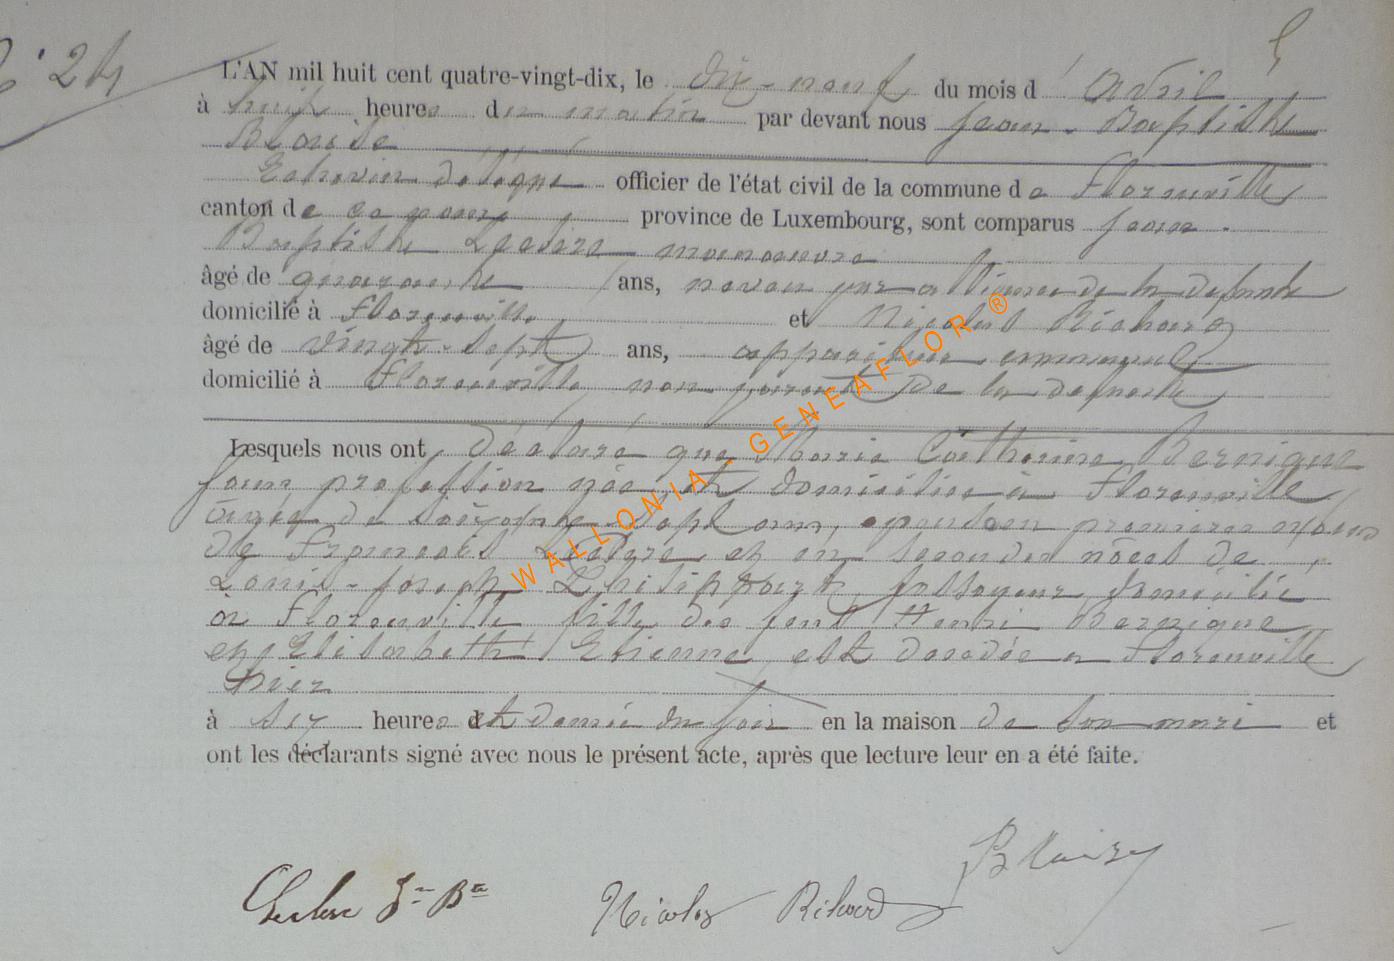 N° 24
L'AN mil huit cent quatre-vingt-dix, le dix-neuf du mois d' Avril
à huit heures du matin par devant nous Jean-Baptiste
Blaise
Echevin délégué officier de l'état civil de la commune de Florenville
canton de ce nom province de Luxembourg, sont comparus Jean
Baptiste Leclerc manoeuvre
âgé de quarante ans, neveu par alliance de la défunte
domicilié à Florenville et Nicolas Richard
âgé de vingt-sept ans, appariteur communal
domicilié à Florenville non parent de la défunte
Lesquels nous ont déclaré que Marie Catherine Bernique
sans profession née et domiciliée à Florenville
âgée de soixante sept ans, épouse en premières nôces
de François Leclere et en secondes nôces de
Louis-Joseph fossoyeur domicilié
à Florenville fille des feux Henri Bernique
et Elisabeth Etienne, est decédée à Florenville
hier
à six heures et demie du soir en la maison de son mari et
ont les déclarants signé avec nous le présent acte, après que lecture leur en a été faite.
Leclerc Jn Bte Nicolas Richard Blaise
WALLONIA - GENEAFLOR ®